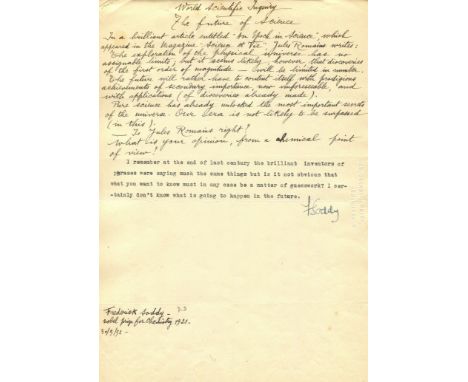 World Scientific Inquiry
The future of Science
In a brilliant article entitled "An Epoch in Science", which
appeared in the Magazine "Science et Vie" Jules Romains writes:
"The exploration of the physical universe has no
assignable limits; but it seems likely, however that discoveries
of the first order of magnitude – will be limited in number.
The future will rather have to content itself with prodigious
achievements of secondary importance, now unforeseeable, and
with applications (of discoveries already made).
Pure science has already unlocked the most important secrets
of the universe. Our era is not likely to be surpassed
(in this).
– Is Jules Romains right?
What is your opinion, from a chemical point
of view?
I remember at the end of last century the brilliant inventors of
phrases were saying much the same things but is it not obvious that
what you want to know must in any case be a matter of guesswork? I cer-
tainly don't know what is going to happen in the future.
F Soddy
Frederick Soddy –
nobel prize for Chemistry 1921.